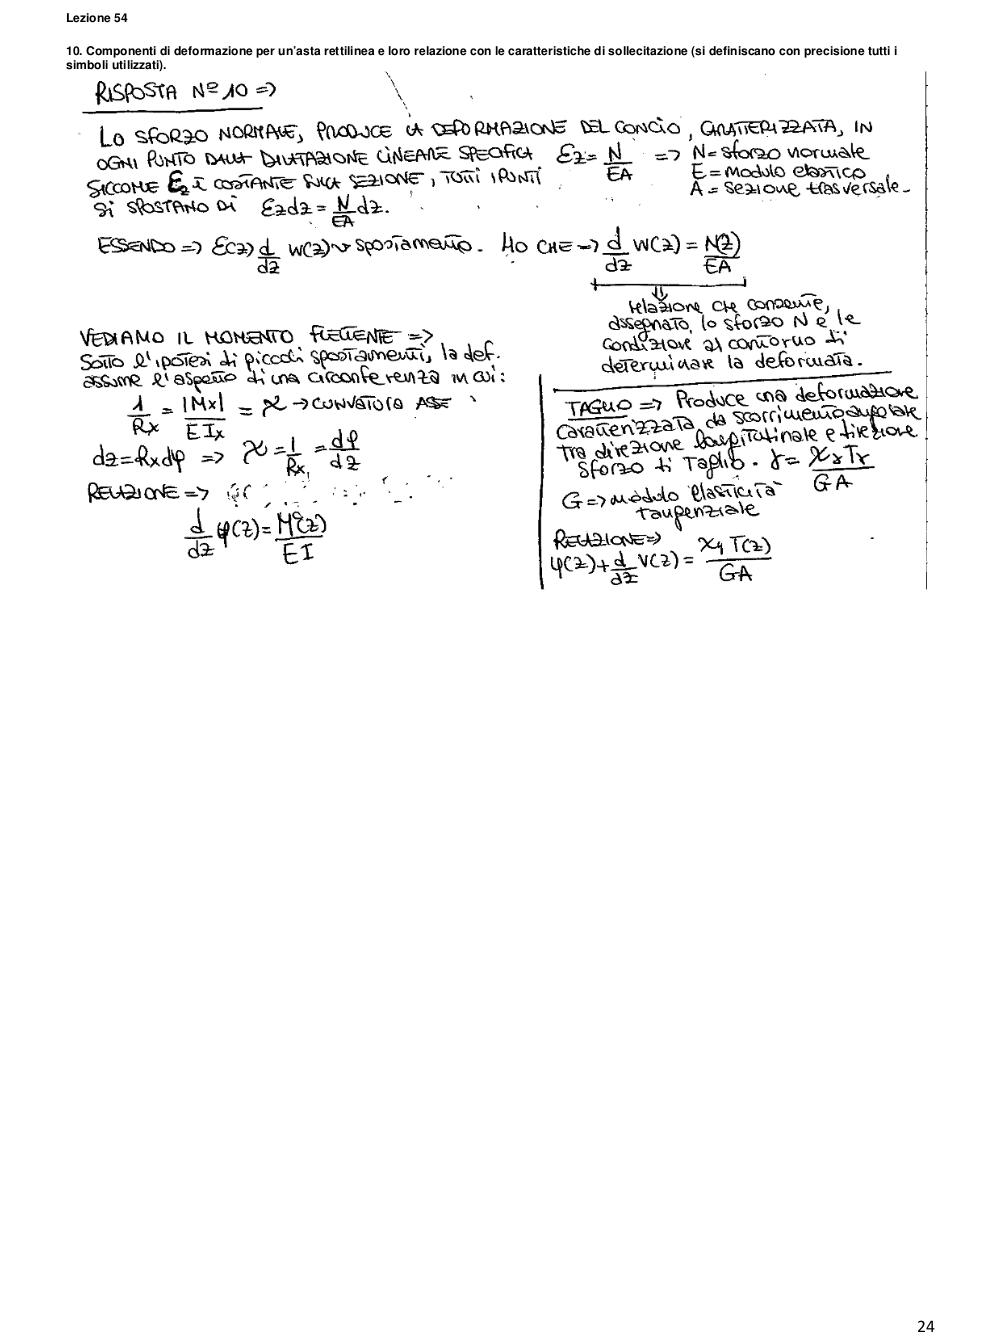 Lezione 54
10. Componenti di deformazione per un'asta rettilinea e loro relazione con le caratteristiche di sollecitazione (si definiscano con precisione tutti i
simboli utilizzati).
RISPOSTA Nº 10 =>
LO SFORZO NORMALE, PRODUCE LA DEFORMAZIONE DEL CONCIO, CARATTERIZZATA, IN
OGNI PUNTO DALLA DILATAZIONE LINEARE SPECIFICA εz = N/EA => N = sforzo normale
E = modulo elastico
A = sezione trasversale -
SICCOME εz È COSTANTE SULLA SEZIONE, TUTTI I PUNTI
SI SPOSTANO DI εzdz = N/EA dz.
ESSENDO => ε(z) d/dz w(z) ~> spostamento. HO CHE -> d/dz w(z) = N(z)/EA
relazione che consente,
assegnato, lo sforzo N e le
condizione al contorno di
determinare la deformata.
VEDIAMO IL MOMENTO FLETTENTE =>
Sotto l'ipotesi di piccoli spostamenti, la def.
assume l'aspetto di una circonferenza in cui:
1/Rx = |Mx|/EIx = χ -> CURVATURA ASSE
dz = Rxdφ => χ = 1/Rx = dφ/dz
RELAZIONE =>
d/dz φ(z) = M(z)/EI
TAGLIO => Produce una deformazione
caratterizzata da scorrimento angolare
tra direzione longitudinale e direzione
sforzo di Taglio. γ = χγTγ/GA
G => modulo elasticità
tangenziale
RELAZIONE =>
φ(z) + d/dz v(z) = χy T(z)/GA
24